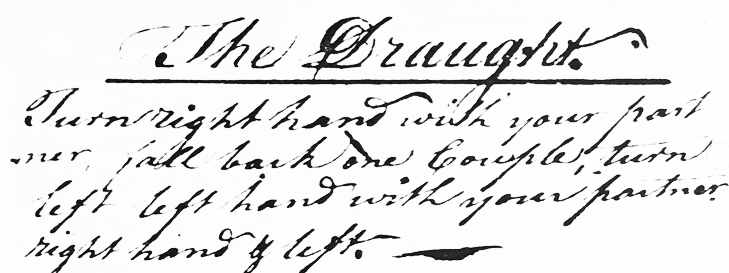 The Draught.
Turn right hand with your part
-ner, fall back one Couple, turn
left left hand with your partner.
right hand & left.